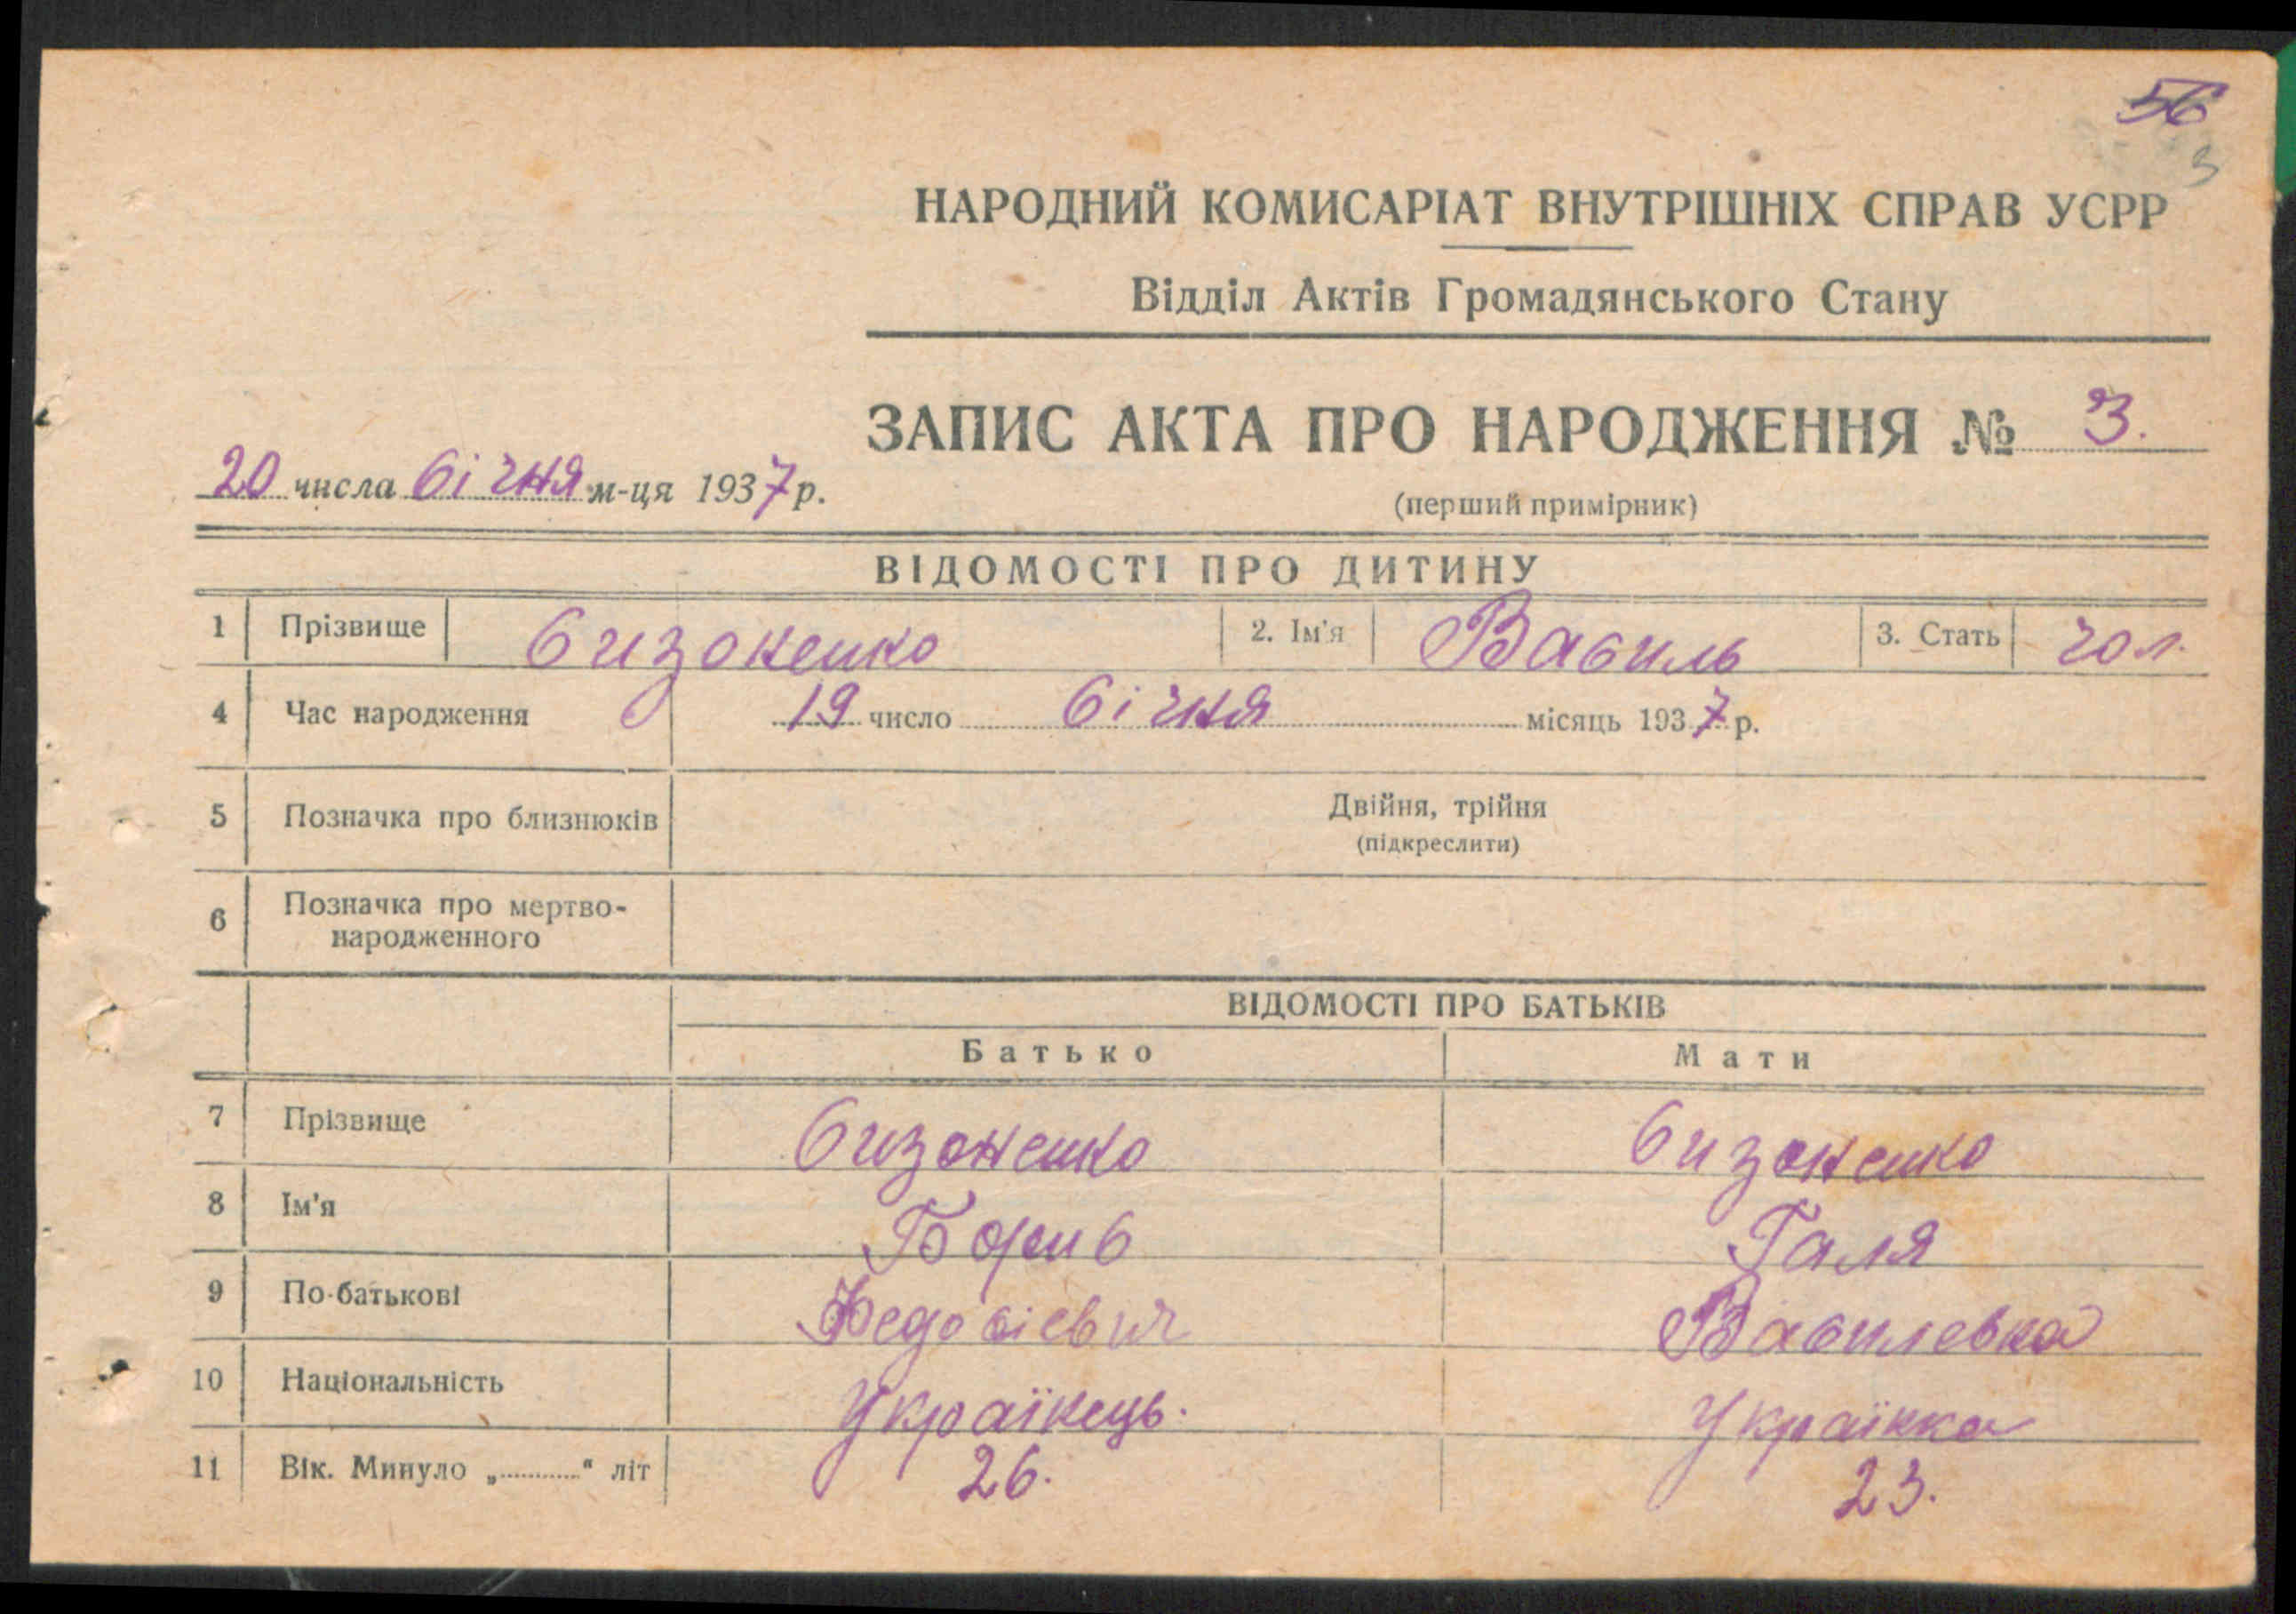 56
3
НАРОДНИЙ КОМИСАРІАТ ВНУТРІШНІХ СПРАВ УСРР
Відділ Актів Громадянського Стану
ЗАПИС АКТА ПРО НАРОДЖЕННЯ № 3.
20 числа січня м-ця 1937 р.
(перший примірник)
ВІДОМОСТІ ПРО ДИТИНУ
1 Прізвище Сизоненко 2. Ім'я Василь 3. Стать чол.
4 Час народження 19 число січня місяць 1937 р.
5 Позначка про близнюків Двійня, трійня
(підкреслити)
6 Позначка про мертво-
народженного
ВІДОМОСТІ ПРО БАТЬКІВ
Батько Мати
7 Прізвище Сизоненко Сизоненко
8 Ім'я Борис Галя
9 По-батькові Федосієвич Василевна
10 Національність Українець. Українка
11 Вік. Минуло „............“ літ 26. 23.